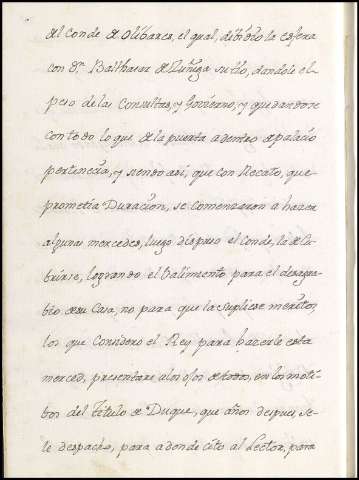 del Conde de Olibares, el qual, dibidio la esfera
con Dn. Balthasar de Zuñiga su tio, dandole el
peso de las Consultas, y Govierno, y quedandose
con todo lo que de la puerta adentro de palacio
pertenecia, y siendo asi, que con Recato, que
prometia Duracion, se comenzaron a hazer
algunas mercedes, luego dispuso el Conde, la de Cu-
brirse, logrando el Valimiento para el desagra-
bio de su Casa, no para que la supliese meritos,
los que Considerò el Rey para hazerle esta
merced, presentare a los ojos de todos, en los moti-
bos del Titulo de Duque, que años despues se
le despachò, para adonde cito al Lector, para